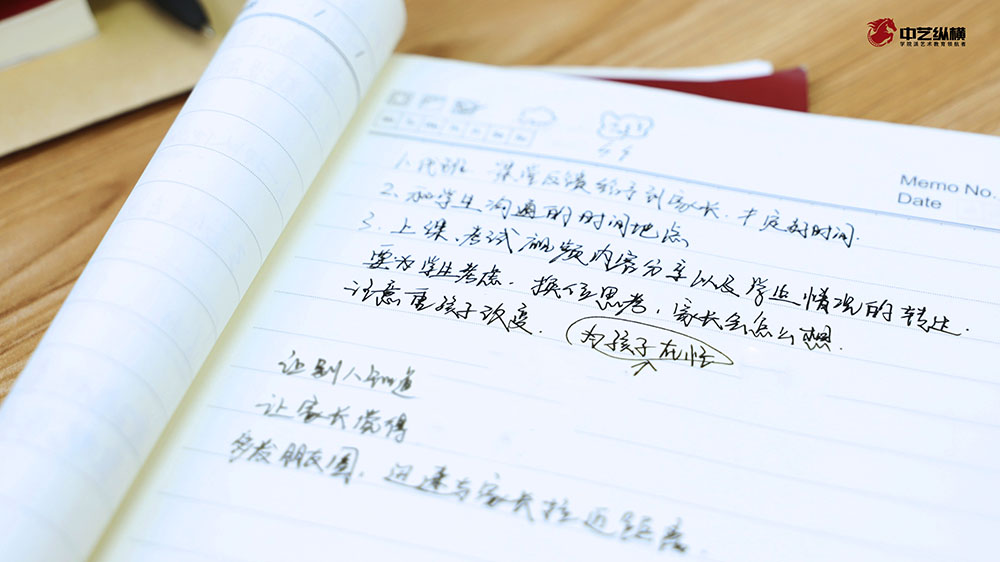 中艺纵横
学院派艺术教育领航者
Memo No.
Date
1. 代班 课堂反馈给予到家长.
2. 和学生沟通的时间地点
3. 上课、考试视频内容分享以及学业情况的转达.
要为学生考虑. 换位思考, 家长会怎么想.
注意重孩子
孩子
让别人知道
让家长觉得
多发朋友圈. 迅速与家长拉近距离.